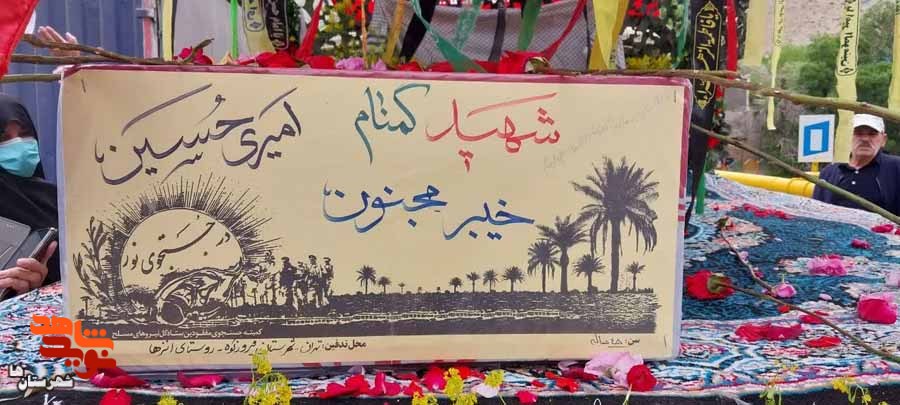 شهید گمنام
امیری حُسین
خیبر مجنون
در جستجوی نور
کمیته جستجوی مفقودین ستاد کل نیروهای مسلح
محل تدفین: تهران - شهرستان فیروزکوه - روستای انزها
سن: ۲۵ ساله
نوید شاهد
شهرستان‌ها